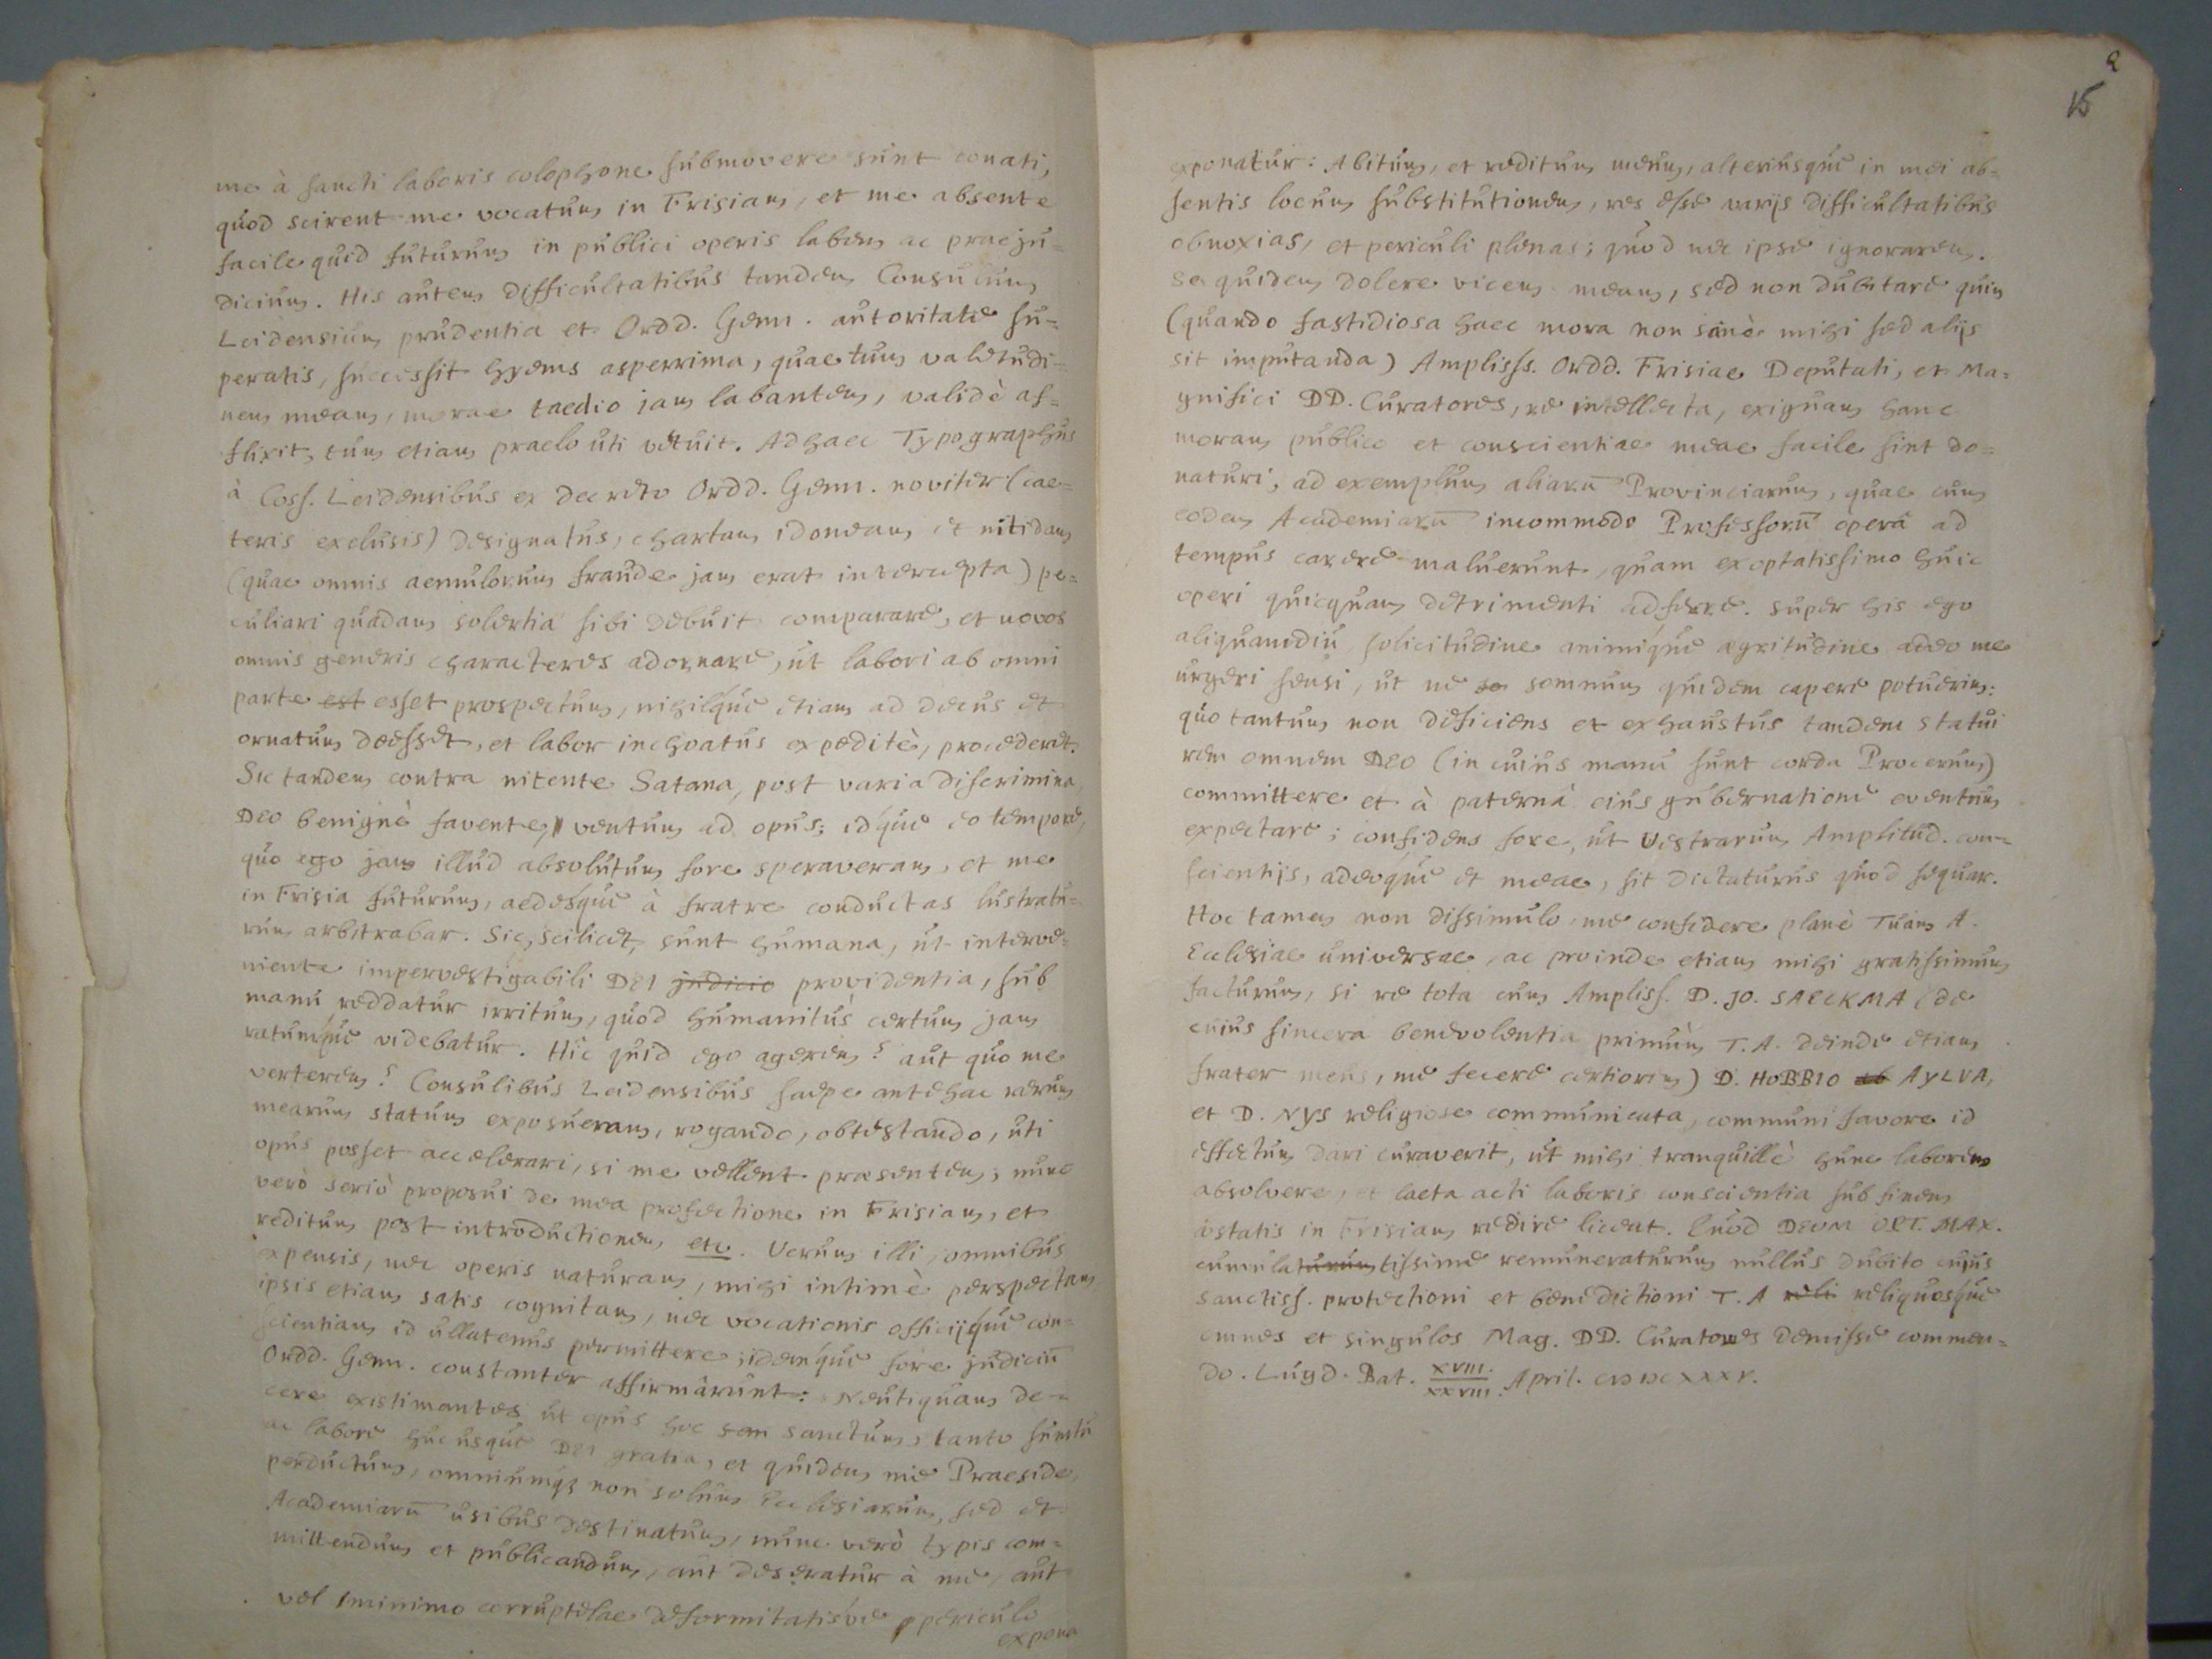 me à sancti laboris colophone submovere sunt conati,
quod scirent me vocatum in Frisiam, et me absente
facile quid futurum in publici operis labem ac praeju-
dicium. His autem difficultatibus tandem Consulum
Leidensium prudentia et Ordd. Genn. autoritate su-
peratis, successit hyems asperrima, quae tum valetudi-
nem meam, morae taedio jam labantem, validè af-
flixit, tum etiam praelo uti vetuit. Ad haec Typographus
à Coss. Leidensibus ex decreto Ordd. Genn. noviter (cae-
teris exclusis) designatus, chartam idoneam et nitidam
(quae omnis aemulorum fraude jam erat intercepta) pe-
culiari quadam solertiâ sibi debuit comparare, et novos
omnis generis characteres adornare, ut labori ab omni
parte est esset prospectum, nihilque etiam ad decus et
ornatum deesset, et labor inchoatus expeditè, procederet.
Sic tandem contra nitente Satana, post varia discrimina,
Deo benignè favente, ventum ad opus; idque eo tempore,
quo ego jam illud absolutum fore speraveram, et me
in Frisia futurum, aedesque à fratre conductas lustratu-
rum arbitrabar. Sic, scilicet, sunt humana, ut interve-
niente impervestigabili DEI judicio providentia, sub
manu reddatur irritum, quod humanitùs certum jam
ratumque videbatur. Hîc quid ego agerem? aut quo me
verterem? Consulibus Leidensibus saepe antehac rerum
mearum statum exposueram, rogando, obtestando, uti
opus posset accelerari, si me vellent praesentem; nunc
verò seriò proposui de mea profectione in Frisiam, et
reditum post introductionem etc. Verum illi, omnibus
expensis, nec operis naturam, mihi intimè perspectam,
ipsis etiam satis cognitam, nec vocationis officijque con-
scientiam id ullatenus permittere; idemque fore judiciũ
Ordd. Genn. constanter affirmârunt: Neutiquam de-
cere existimantes ut opus hoc san sanctum, tanto sumtu
ac labore hucusque DEI gratia, et quidem me Praeside,
perductum, omniumq; non solùm Ecclesiarum, sed et
Academiarũ usibus destinatum, nunc verò typis com-
mittendum et publicandum, aut deseratur à me, aut
vel minimo corruptelae deformitatisve periculo
expona
2
15
exponatur: Abitum, et reditum meum, alteriusque in mei ab-
sentis locum substitutionem, res esse varijs difficultatibus
obnoxias, et periculi plenas; quod nec ipse ignorarem.
Se quidem dolere vicem meam, sed non dubitare quin
(quando fastidiosa haec mora non sanè mihi sed alijs
sit imputanda) Ampliss. Ordd. Frisiae Deputati, et Ma-
gnifici DD. Curatores, re intellecta, exiguam hanc
moram publico et conscientiae meae facile sint do-
naturi, ad exemplum aliarũ Provinciarum, quae cum
eodem Academiarũ incommodo Professorũ operâ ad
tempus carere maluerunt, quam exoptatissimo huic
operi quicquam detrimenti adferre. Super his ego
aliquamdiu solicitudine animique aegritudine adeo me
urgeri sensi, ut ne so somnum quidem capere potuerim:
quo tantum non deficiens et exhaustus tandem statui
rem omnem DEO (in cuius manu sunt corda Procerum)
committere et à paternâ eius gubernatione eventum
expectare; confidens fore, ut Vestrarum Amplitud. con-
scientijs, adeoque et meae, sit dictaturus quod sequar.
Hoc tamen non dissimulo, me confidere planè Tuam A.
Ecclesiae universae, ac proinde etiam mihi gratissimum
facturum, si re tota cum Ampliss. D. JO. SAECKMA (de
cuius sincera benevolentia primùm T. A. deinde etiam
frater meus, me fecere certiorem) D. HOBBIO ab AYLVA,
et D. NYS religiose communicata, communi favore id
effectum dari curaverit, ut mihi tranquillè hunc laborem
absolvere, et laeta acti laboris conscientia sub finem
aestatis in Frisiam redire liceat. Quod DEUM OPT. MAX.
cumulaturum tissime remuneraturum nullus dubito cujus
sanctiss. protectioni et benedictioni T. A reli reliquosque
omnes et singulos Mag. DD. Curatores demisse commen-
do. Lugd. Bat. XVIII./XXVIII. April. CIƆ IƆC XXXV.